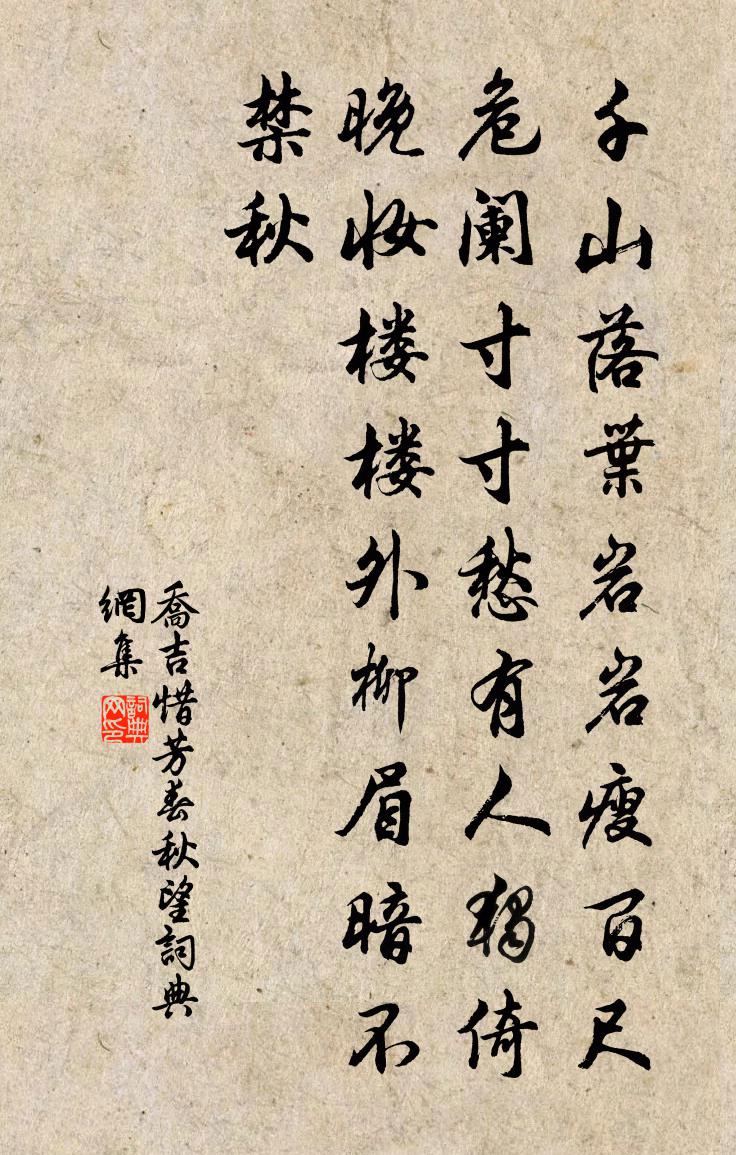 千山落葉岩岩瘦百尺
危阑寸寸愁有人獨倚
晚妆楼楼外柳眉暗不
禁秋
喬吉惜芳春秋望詞典
網集
詞典
网印